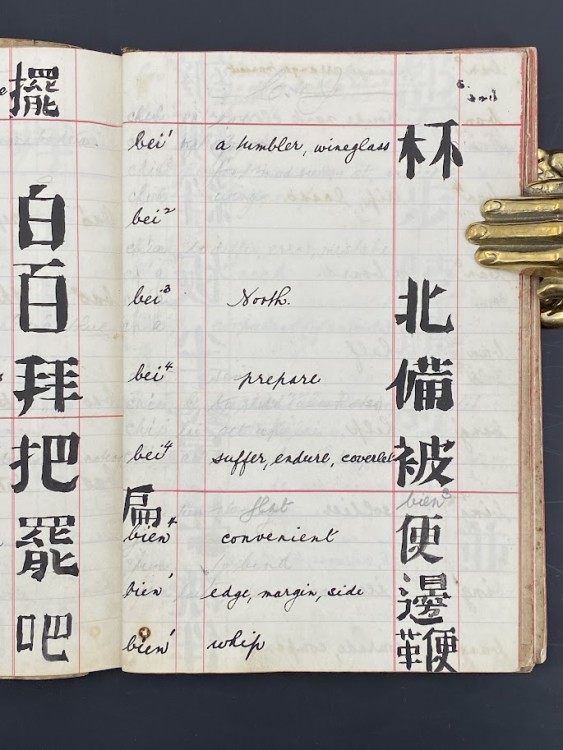 擺
白
百
拜
把
罷
吧
bei¹ a tumbler, wineglass 杯
bei²
bei³ North. 北
bei⁴ prepare 備
bei⁴ suffer, endure, coverlet 被
扁 flat bien³
bien⁴ convenient 便
bien¹ edge, margin, side 邊
bien¹ whip 鞭